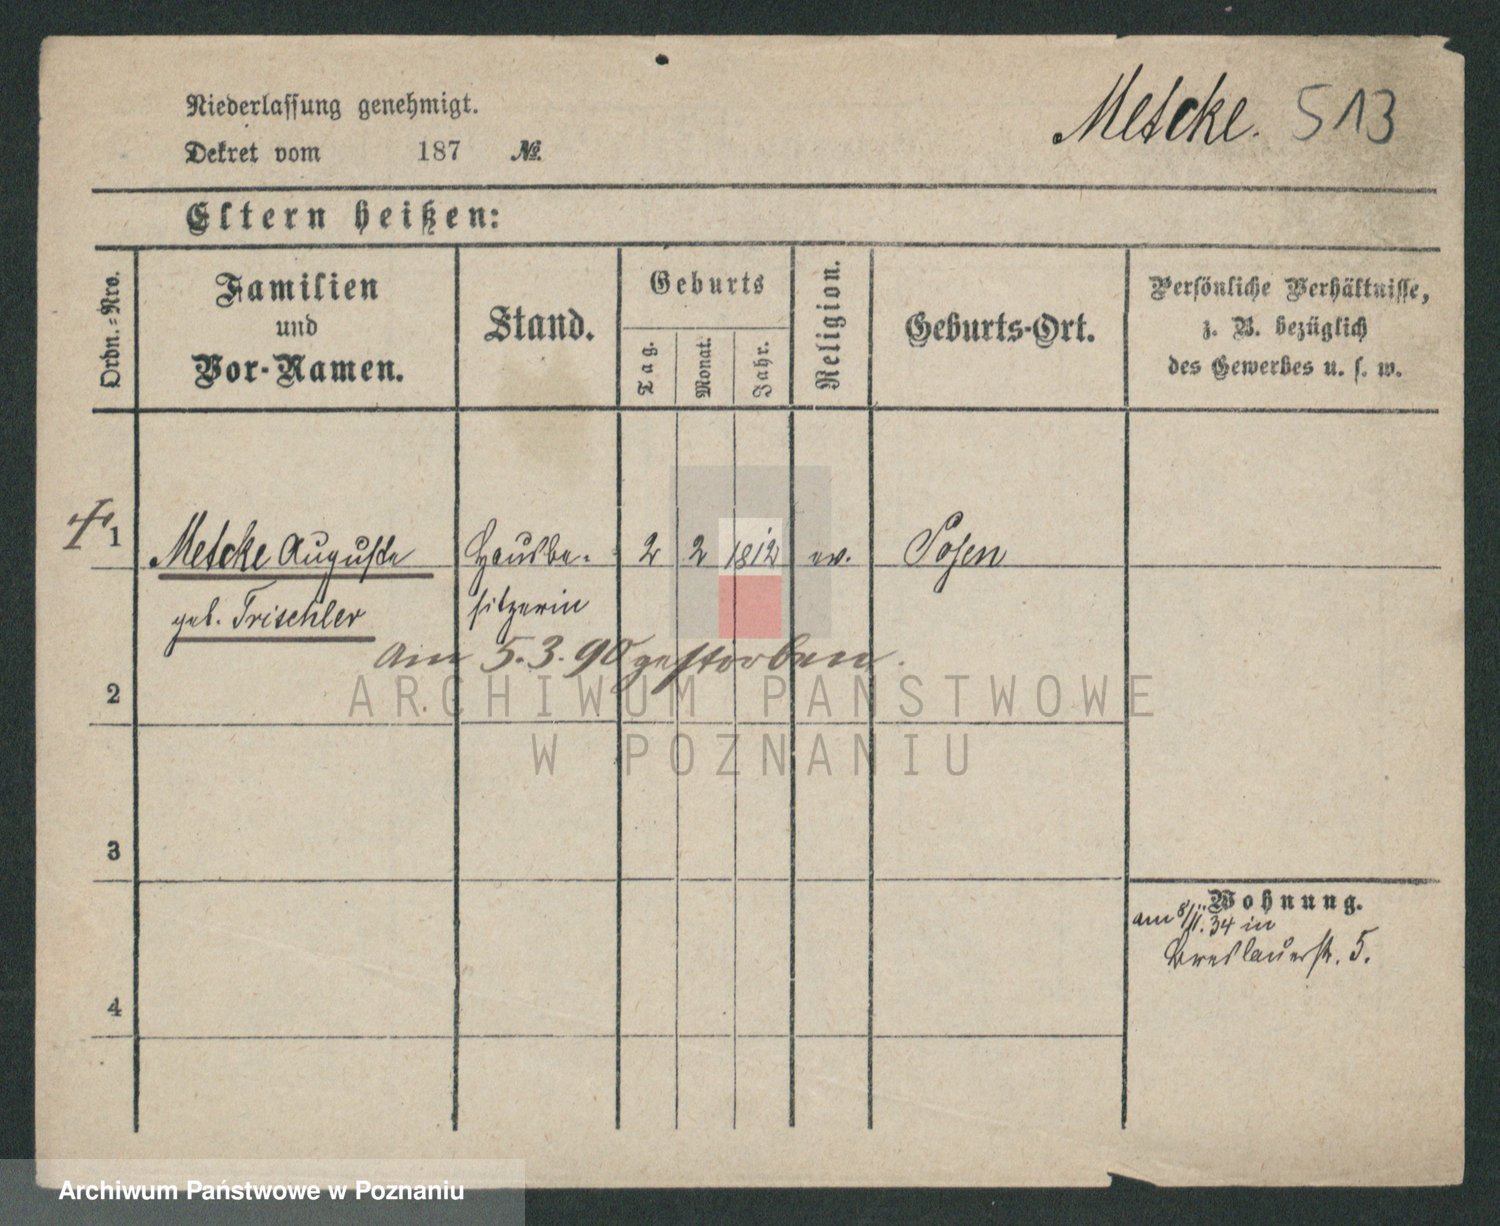 Niederlassung genehmigt.
Metcke. 513
Dekret vom 187 №.
Eltern heißen:
Ordn.-Nro.
Familien
und
Vor-Namen.
Stand.
Geburts
Tag.
Monat.
Jahr.
Religion.
Geburts-Ort.
Persönliche Verhältnisse,
z. B. bezüglich
des Gewerbes u. s. w.
1 Metcke Auguste Hausbe- 2 2 1812 ev. Posen
geb. Trischler sitzerin
am 5.3.90 gestorben.
2
ARCHIWUM PAŃSTWOWE
W POZNANIU
3
Wohnung.
am 8/11.34 in
Breslauerstr. 5.
4
Archiwum Państwowe w Poznaniu